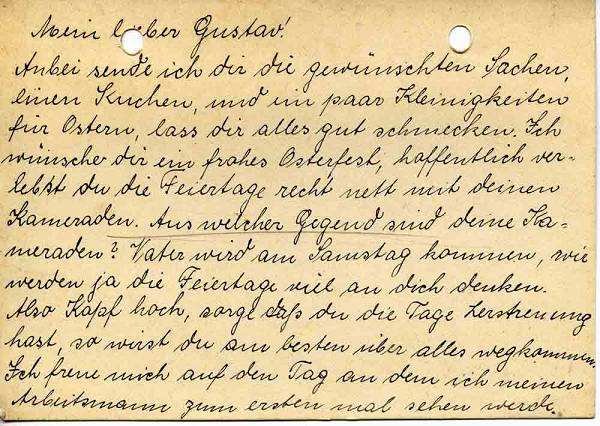 Mein lieber Gustav!
Anbei sende ich dir die gewünschten Sachen,
einen Kuchen, und ein paar Kleinigkeiten
für Ostern, lass dir alles gut schmecken. Ich
wünsche dir ein frohes Osterfest, hoffentlich ver-
lebst du die Feiertage recht nett mit deinen
Kameraden. Aus welcher Gegend sind deine Ka-
meraden? Vater wird am Samstag kommen, wie
werden ja die Feiertage viel an dich denken.
Also Kopf hoch, sorge daß du die Tage Zerstreuung
hast, so wirst du am besten über alles wegkommen.
Ich freue mich auf den Tag an dem ich meinen
Arbeitsmann zum ersten mal sehen werde.